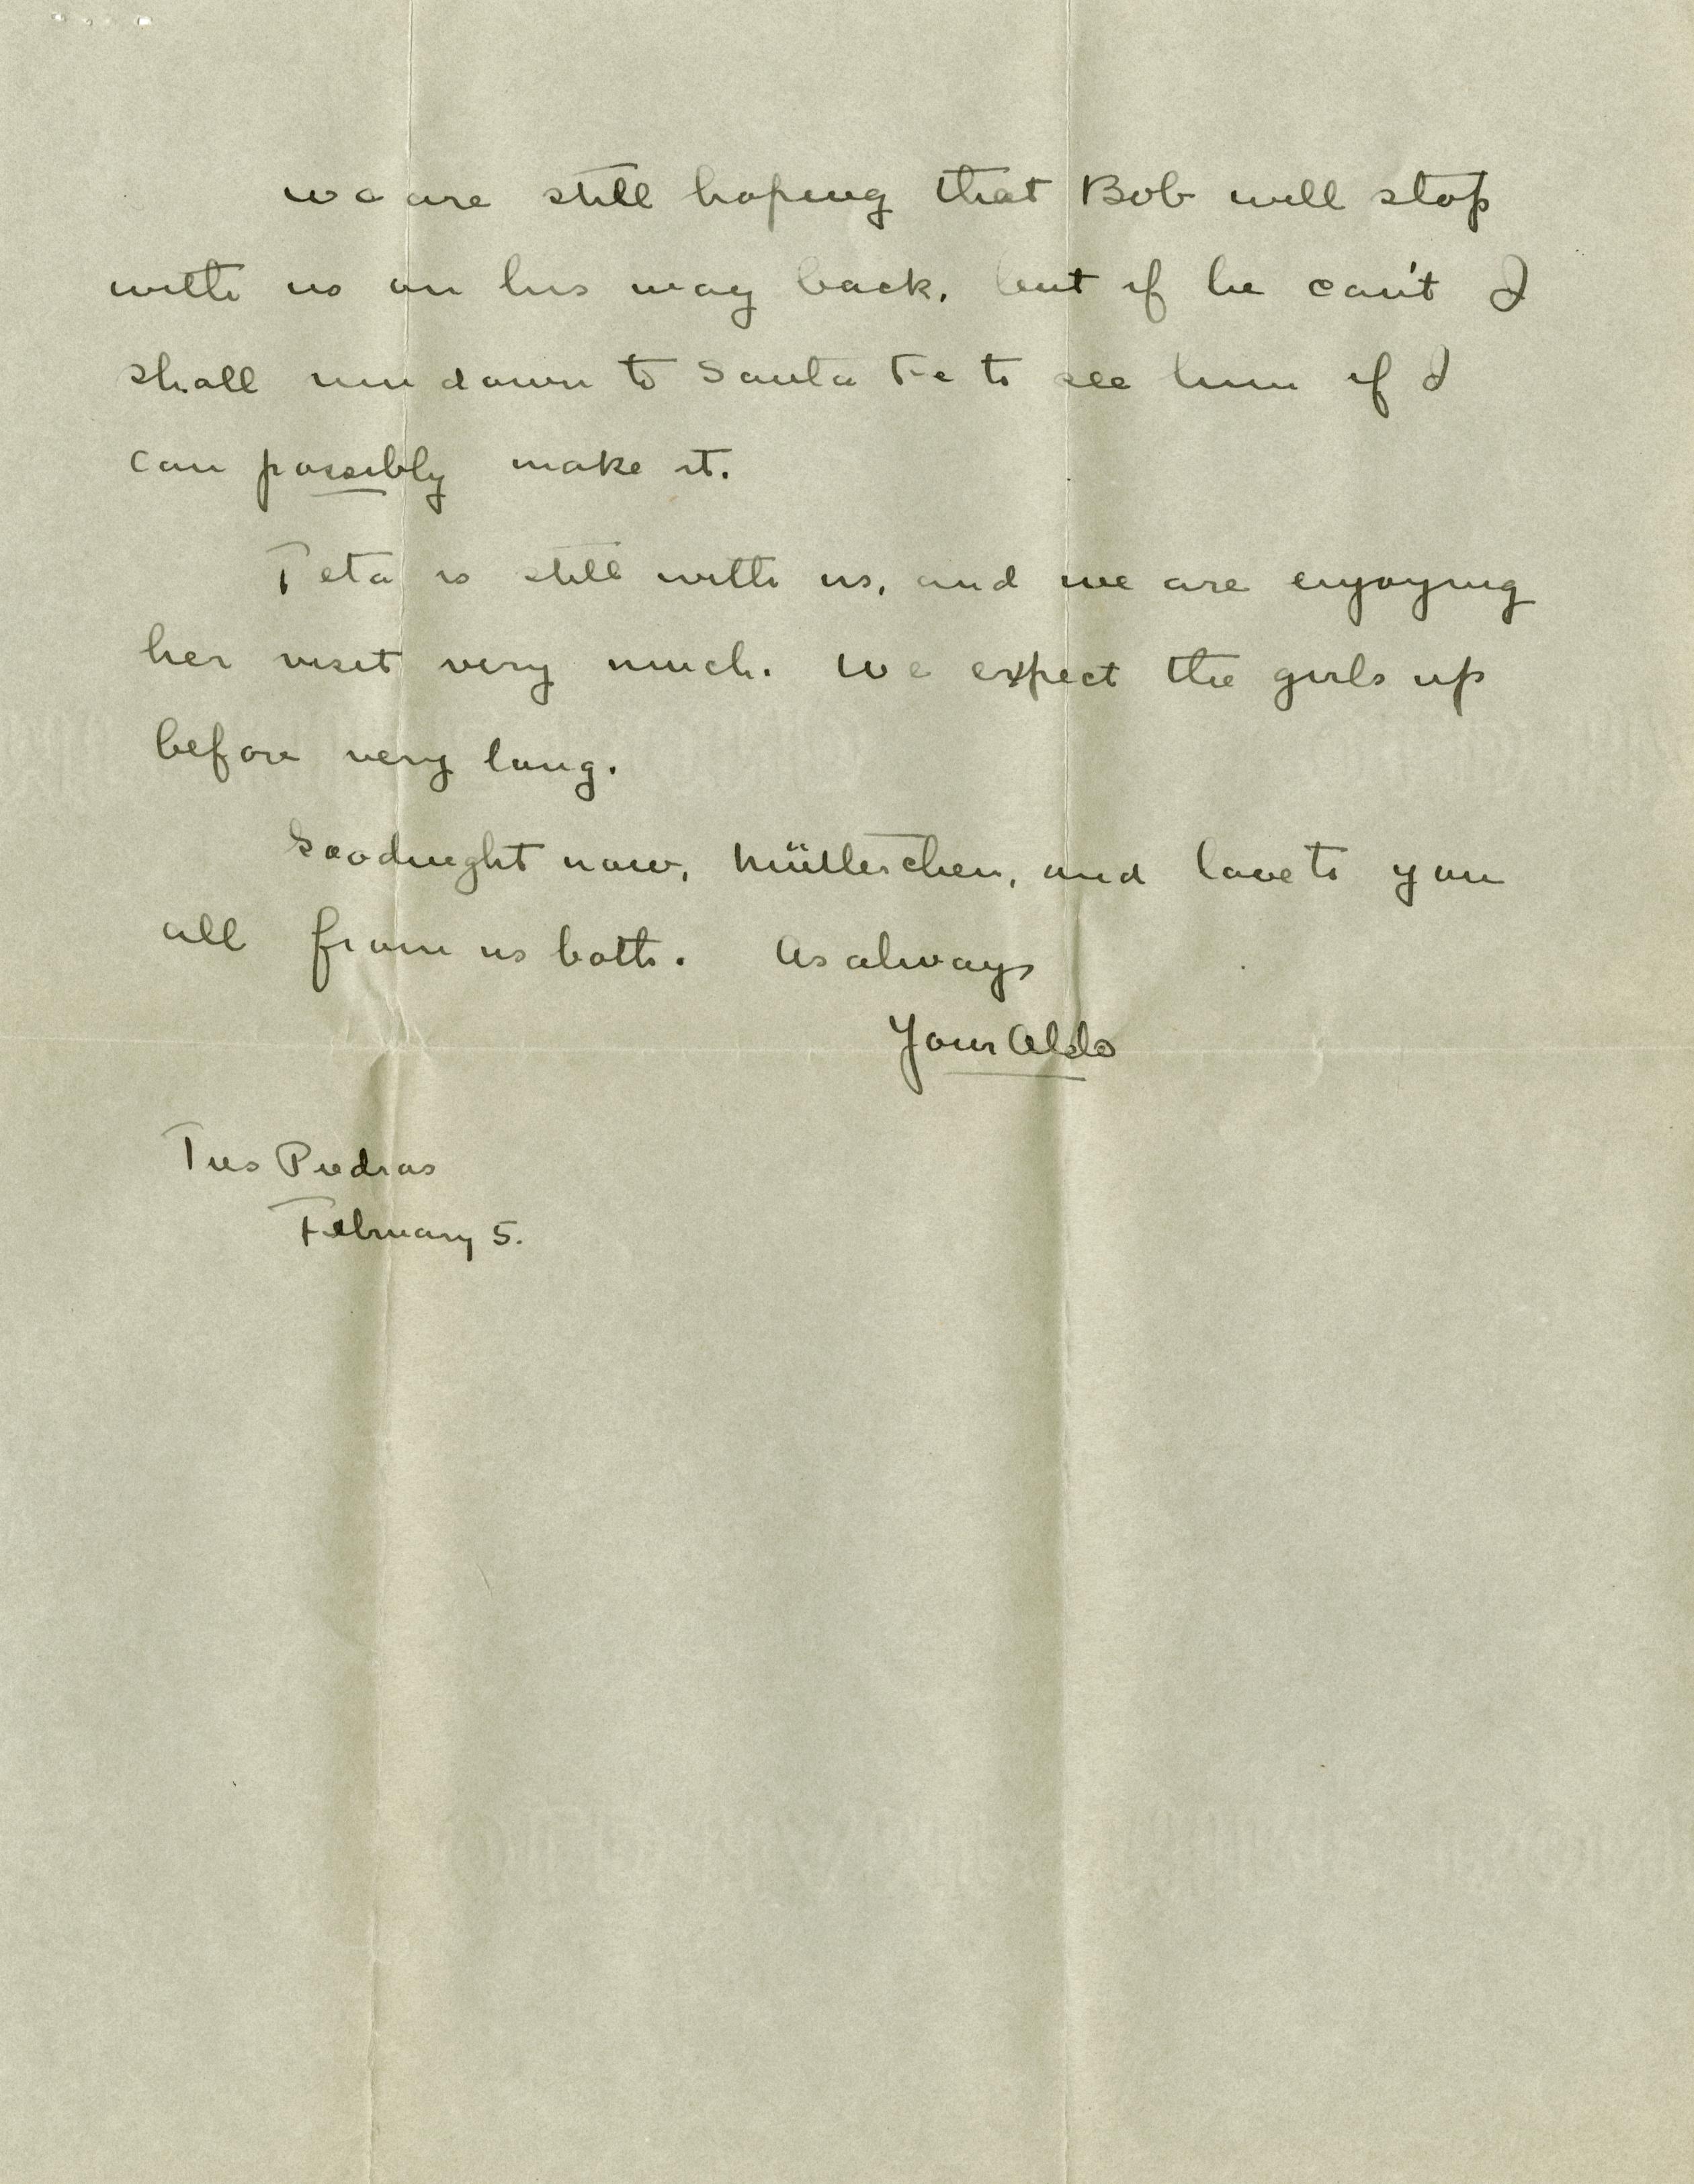 We are still hoping that Bob will stop
with us on his way back, but if he can't I
shall run down to Santa Fe to see him if I
can possibly make it.
Teta is still with us, and we are enjoying
her visit very much. We expect the girls up
before very long.
Goodnight now, Mütterchen, and love to you
all from us both. As always
Your Aldo
Tres Piedras
February 5.